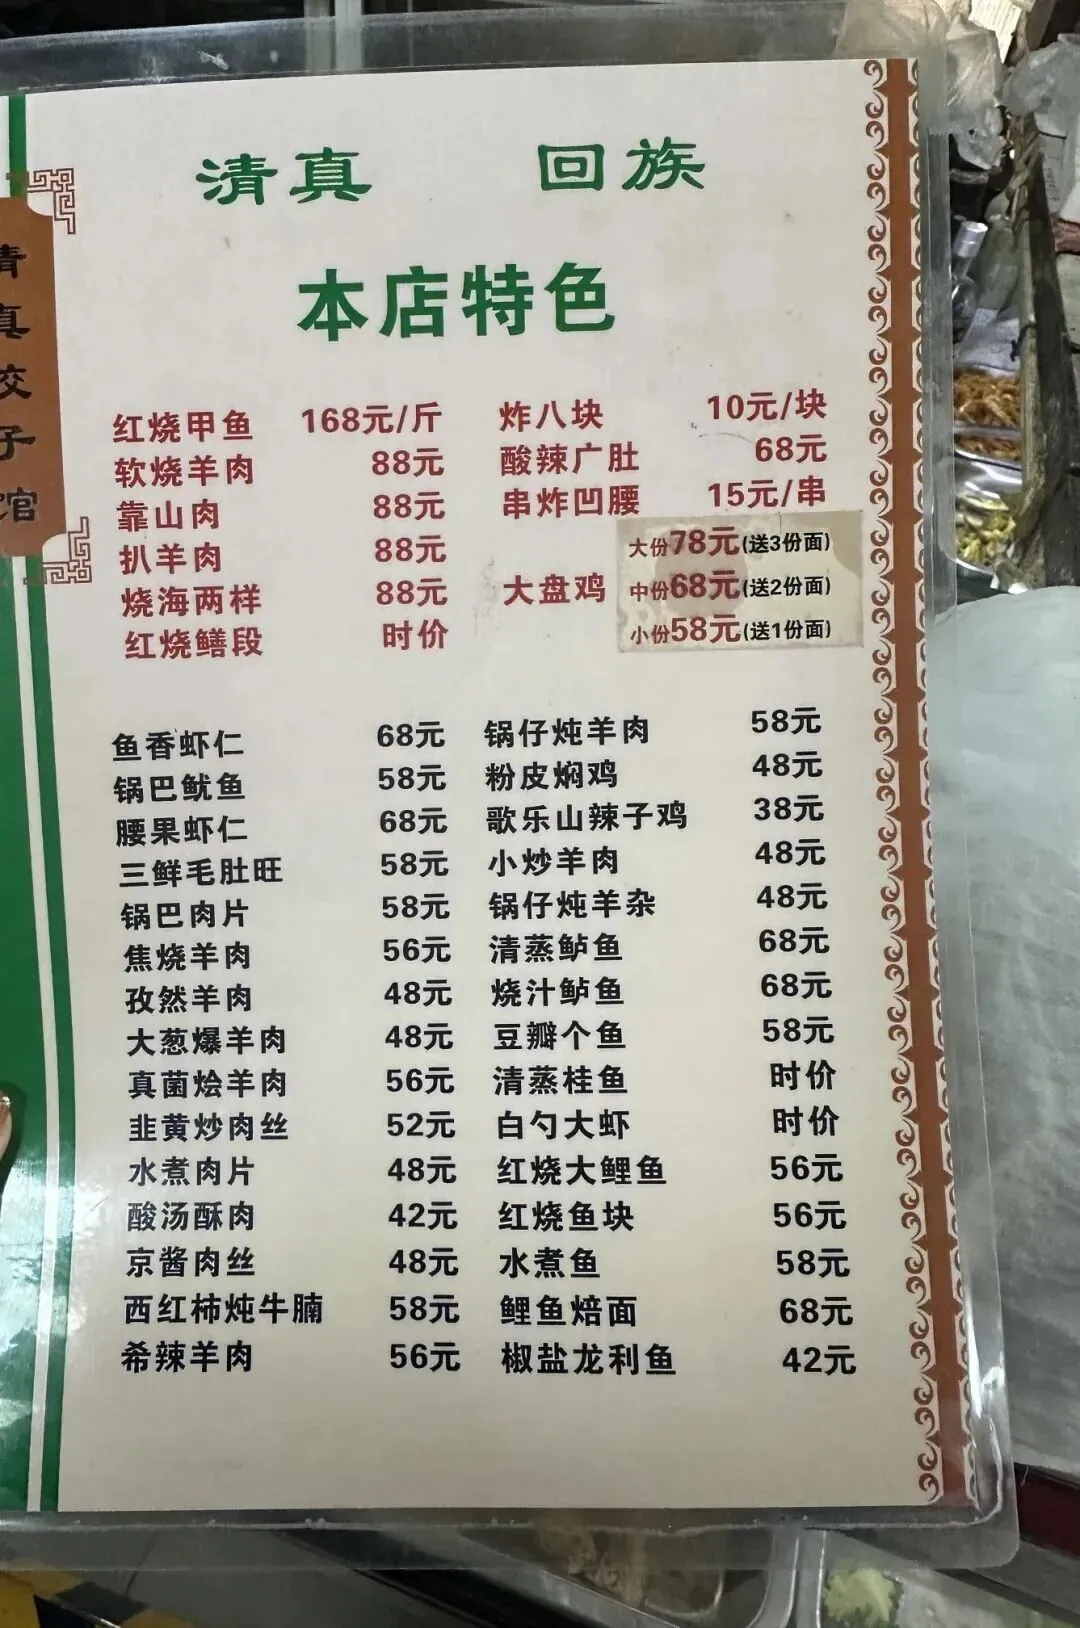 清真 回族
本店特色
清真饺子馆
红烧甲鱼 168元/斤
软烧羊肉 88元
靠山肉 88元
扒羊肉 88元
烧海两样 88元
红烧鳝段 时价
炸八块 10元/块
酸辣广肚 68元
串炸凹腰 15元/串
大盘鸡
大份78元(送3份面)
中份68元(送2份面)
小份58元(送1份面)
鱼香虾仁 68元
锅巴鱿鱼 58元
腰果虾仁 68元
三鲜毛肚旺 58元
锅巴肉片 58元
焦烧羊肉 56元
孜然羊肉 48元
大葱爆羊肉 48元
真菌烩羊肉 56元
韭黄炒肉丝 52元
水煮肉片 48元
酸汤酥肉 42元
京酱肉丝 48元
西红柿炖牛腩 58元
希辣羊肉 56元
锅仔炖羊肉 58元
粉皮焖鸡 48元
歌乐山辣子鸡 38元
小炒羊肉 48元
锅仔炖羊杂 48元
清蒸鲈鱼 68元
烧汁鲈鱼 68元
豆瓣个鱼 58元
清蒸桂鱼 时价
白勺大虾 时价
红烧大鲤鱼 56元
红烧鱼块 56元
水煮鱼 58元
鲤鱼焙面 68元
椒盐龙利鱼 42元